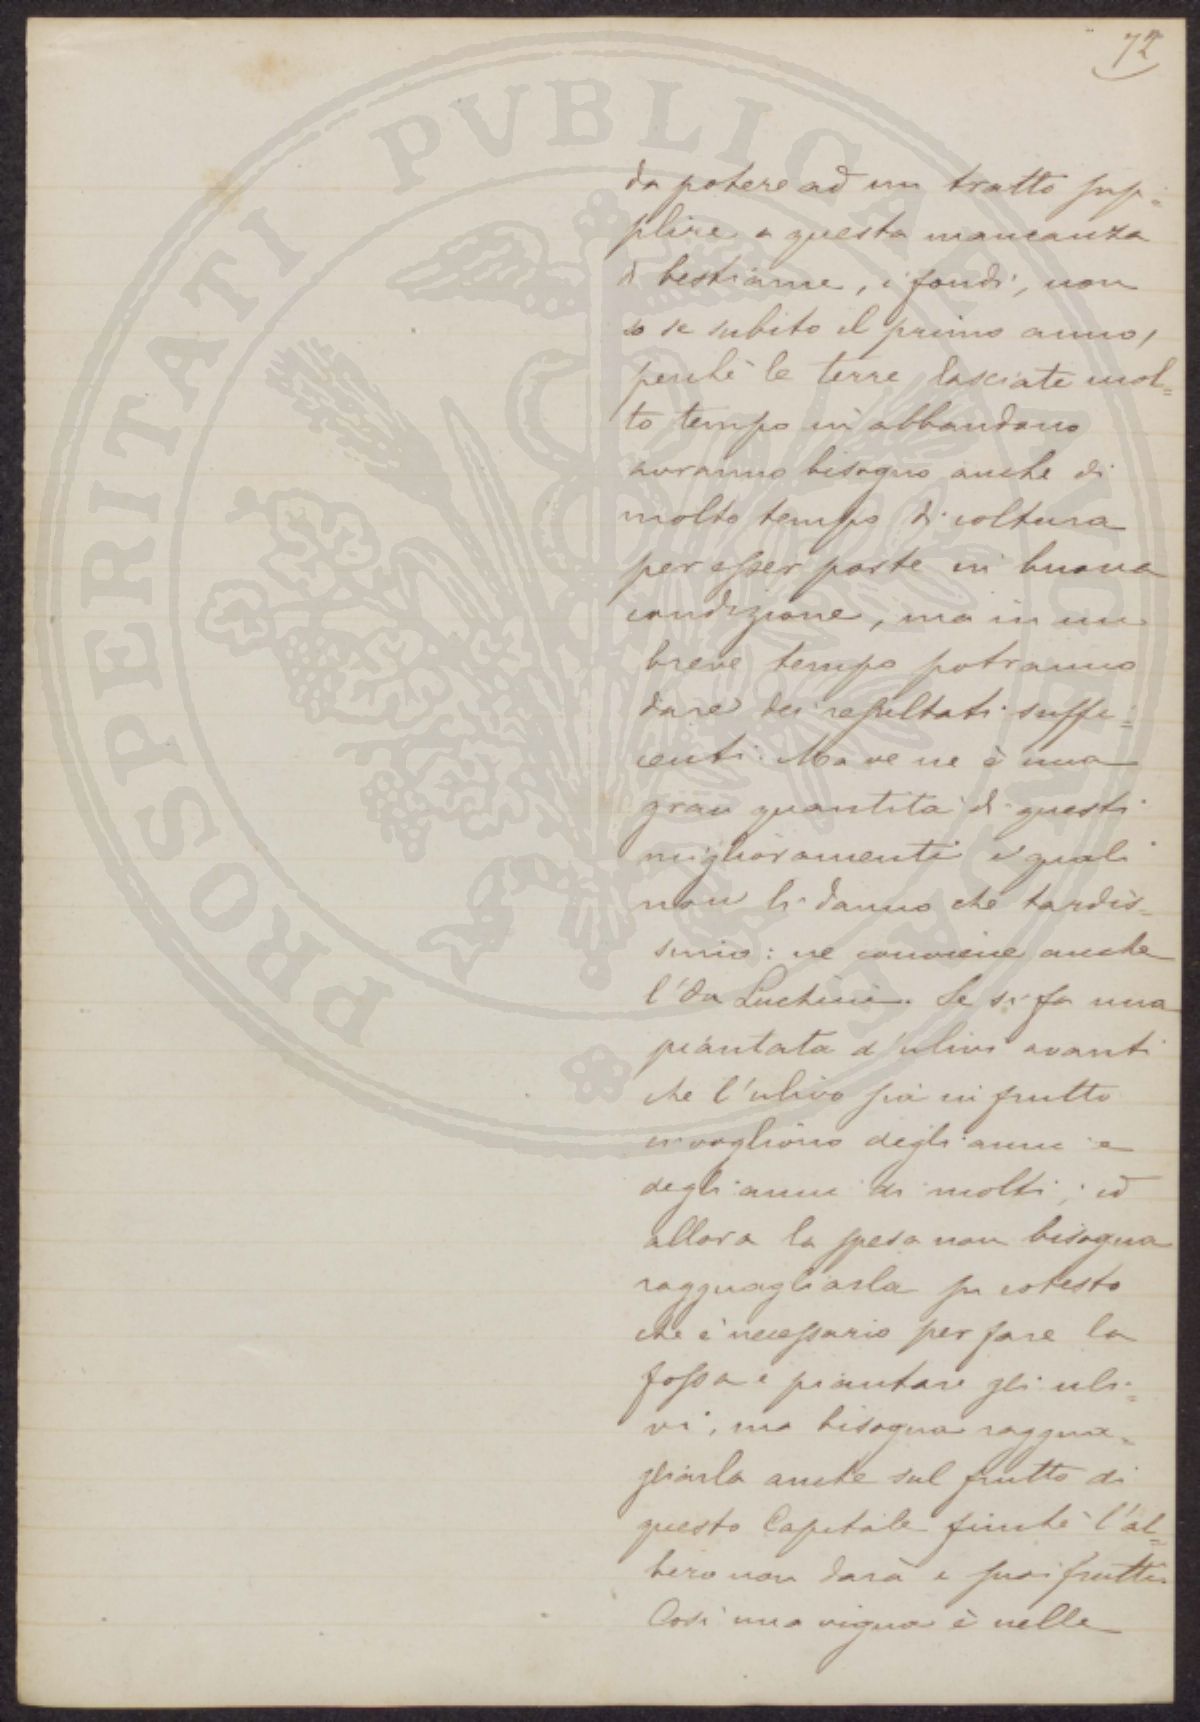 72
da potere ad un tratto sup=
plire a questa mancanza
di bestiame, i fondi, non
so se subito il primo anno,
perchè le terre lasciate mol=
to tempo in abbandono
avranno bisogno anche di
molto tempo di coltura
per esser poste in buona
condizione, ma in un
breve tempo potranno
dare dei resultati suffi=
centi. Ma ve ne è una
gran quantità di questi
miglioramenti i quali
non li danno che tardis=
simo: ne conviene anche
l'da Luchini. Se si fa una
piantata d'ulivi avanti
che l'ulivo sia in frutto
ci vogliono degli anni e
degli anni di molti; ed
allora la spesa non bisogna
ragguagliarla su cotesto
che è necessario per fare la
fossa e piantare gli uli=
vi, ma bisogna raggua=
gliarla anche sul frutto di
questo Capitale finchè l'al=
bero non darà i suoi frutti.
Così una vigna è nelle
PROSPERITATI PVBLICAE AVGENDAE